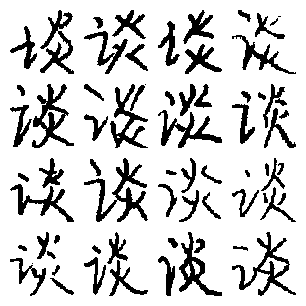 谈谈谈谈
谈谈谈谈
谈谈谈谈
谈谈谈谈